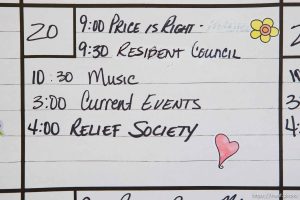 20
9:00 PRICE IS RIGHT -
9:30 RESIDENT COUNCIL
10:30 MUSIC
3:00 CURRENT EVENTS
4:00 RELIEF SOCIETY